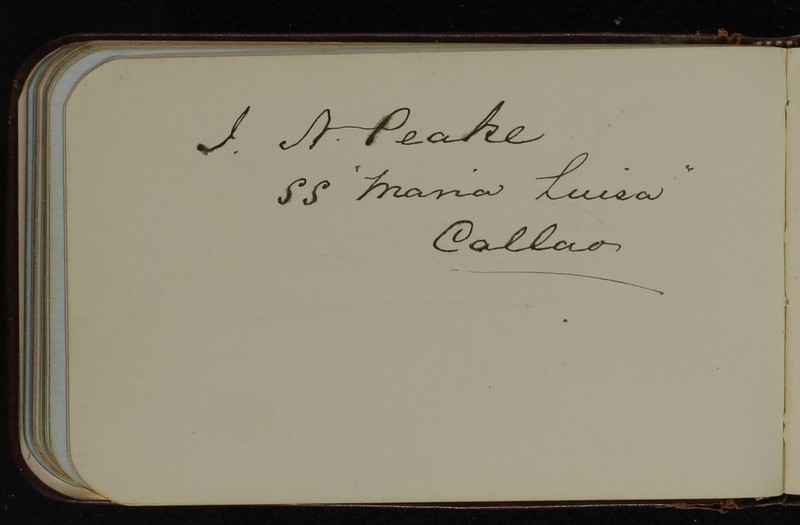 J. A. Peake
SS "Maria Luisa"
Callao